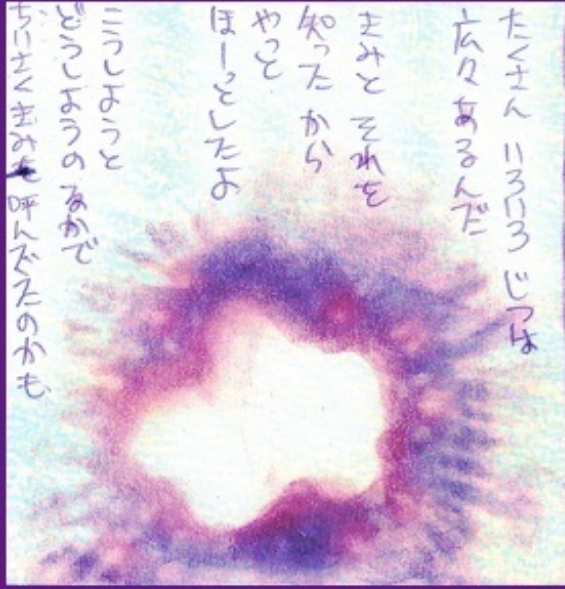 たくさん いろいろ じつは
広々 あるんだ
きみと それを
知った から
やっと
ほーっとしたよ
こうしようと
どうしようの なかで
ちいさく きみを 呼んでたのかも